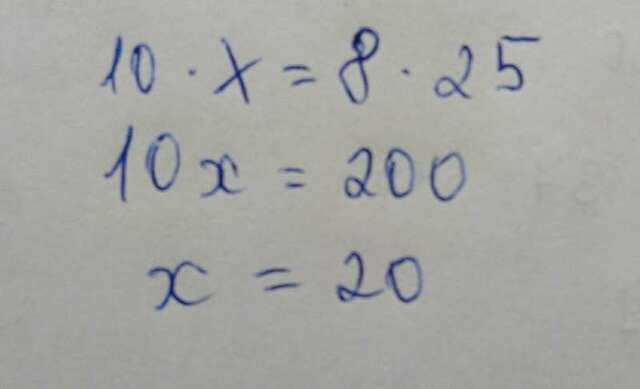 10 · x = 8 · 25
10x = 200
x = 20